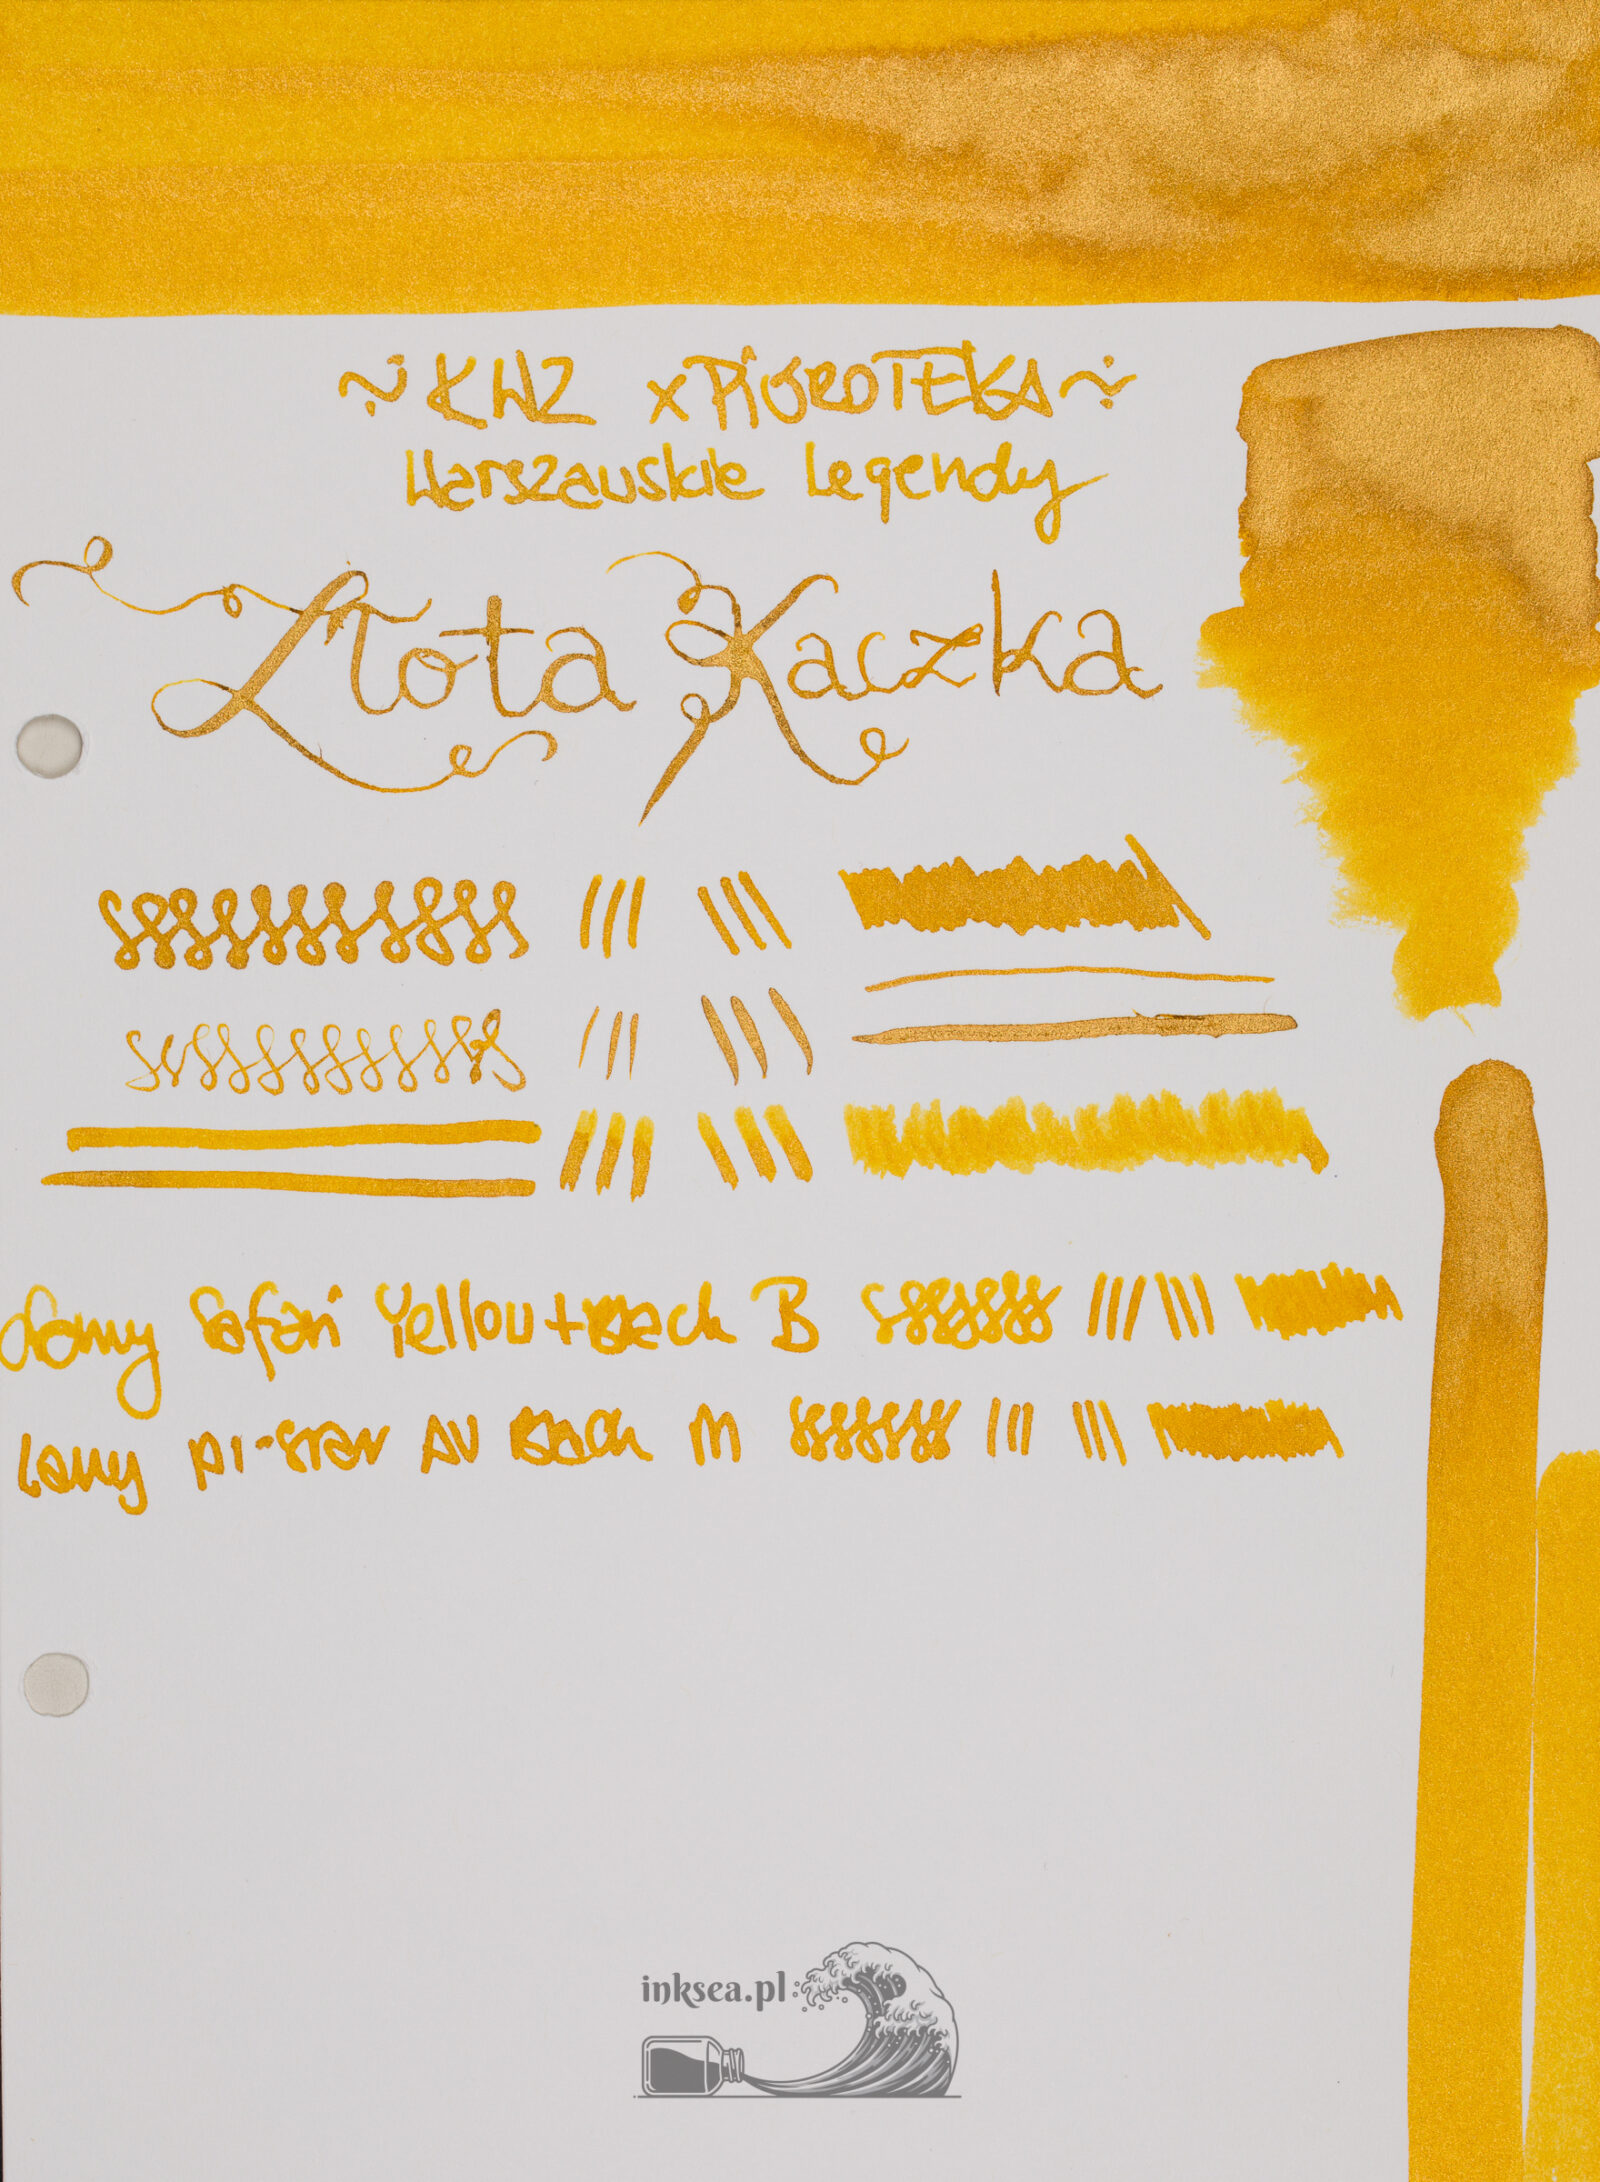 ~ KWZ x PIÓROTEKA ~
Warszawskie Legendy
Złota Kaczka
Lamy Safari Yellow + Black B
Lamy Al-star AV Black M
inksea.pl